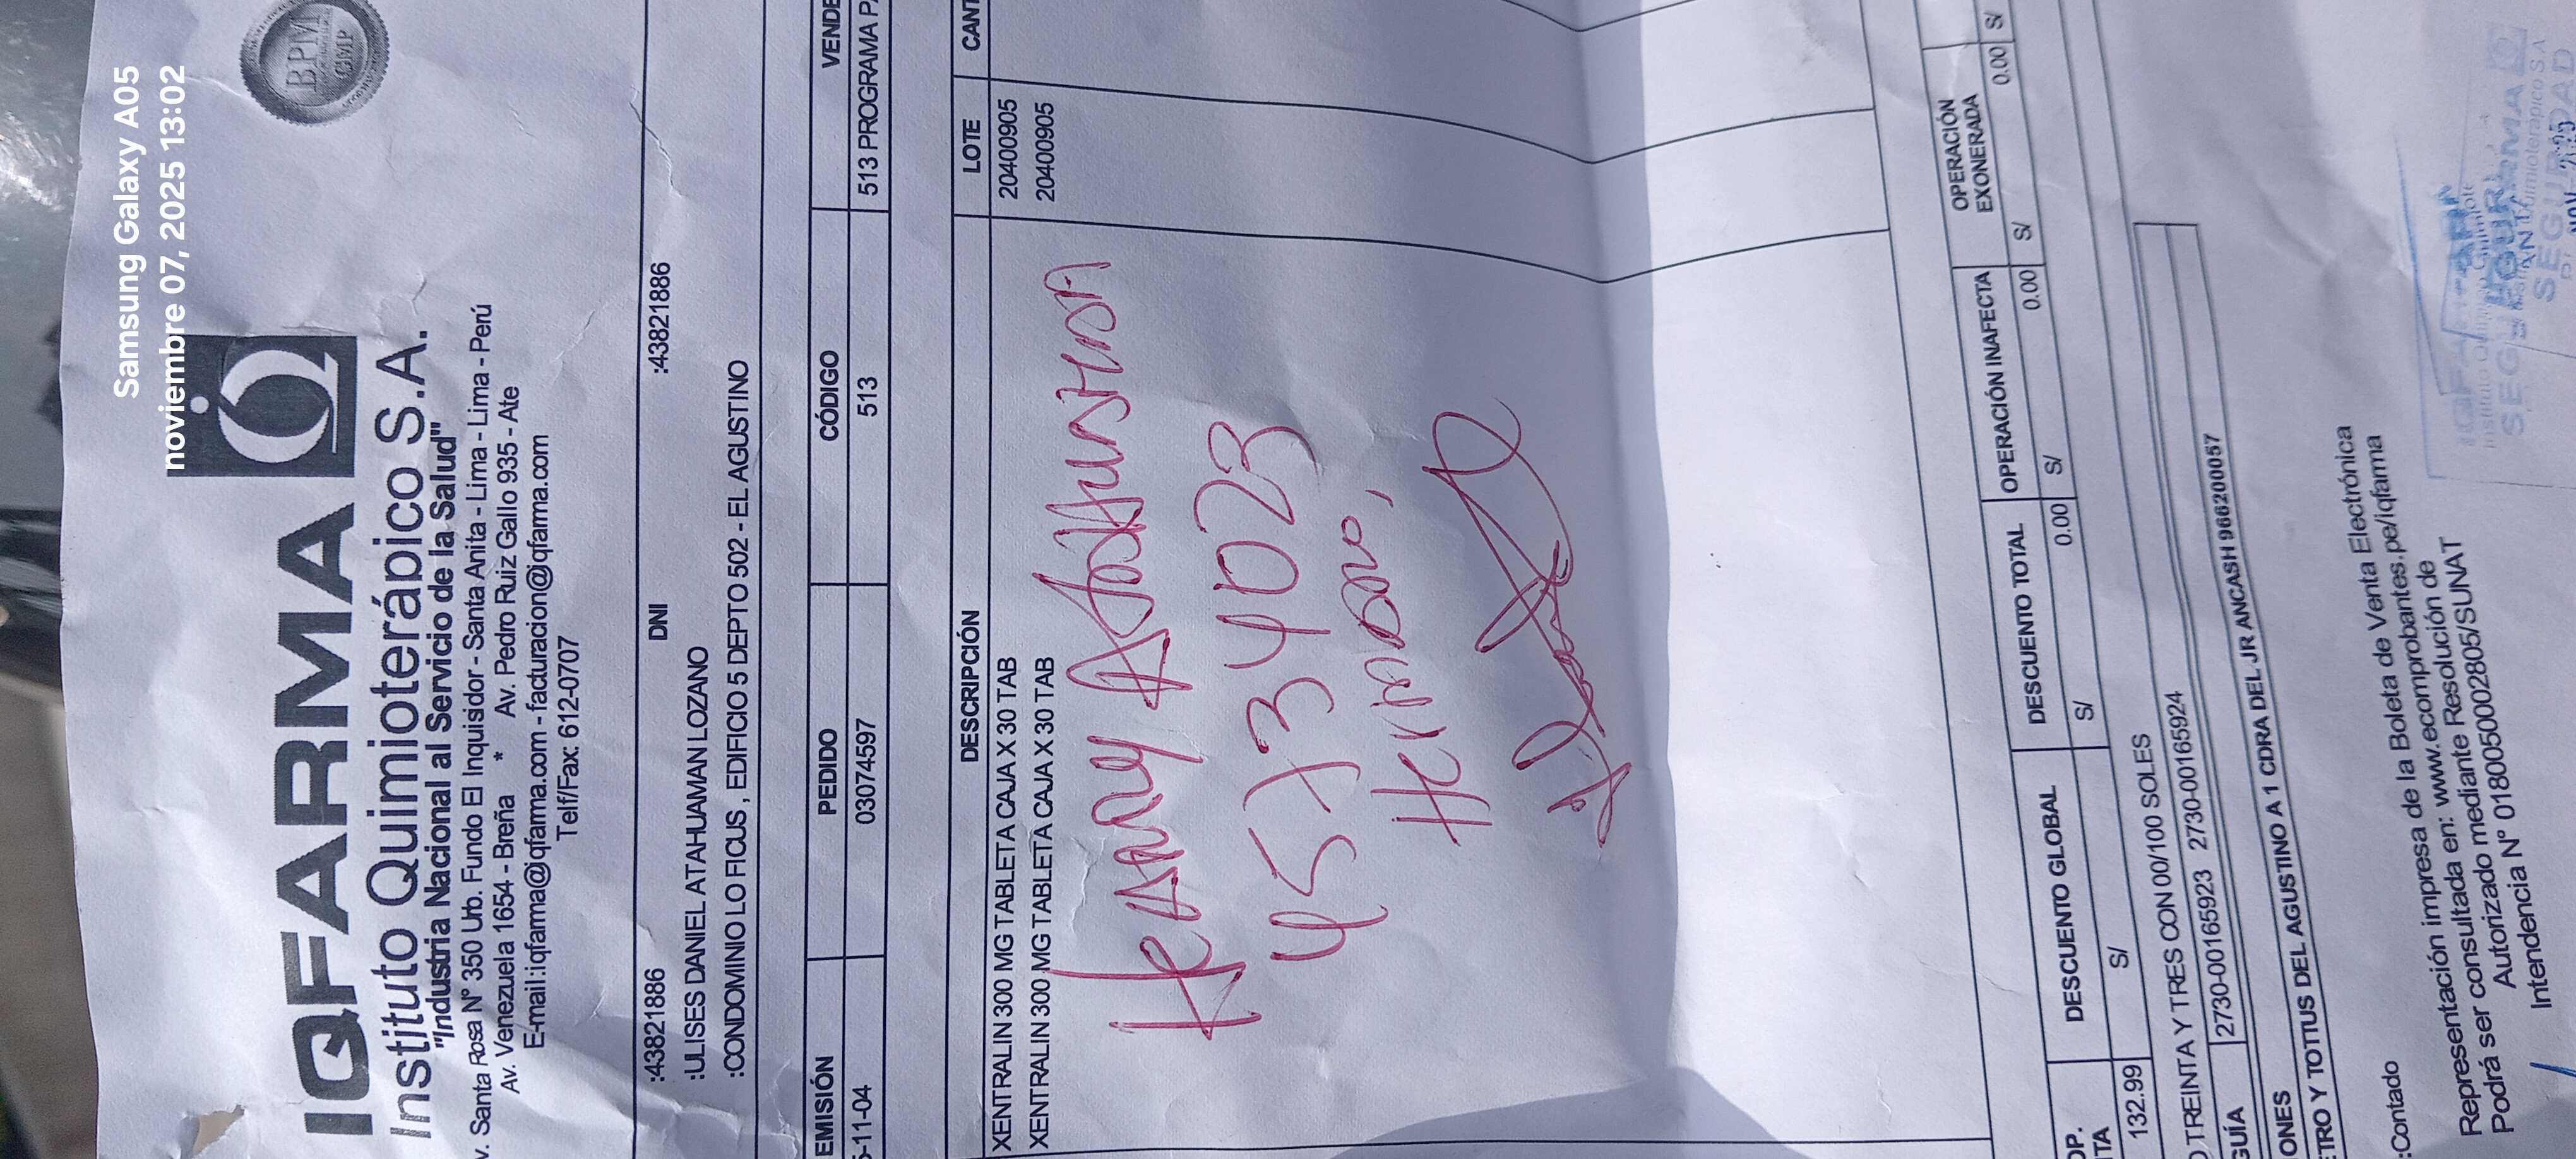 Samsung Galaxy A05
noviembre 07, 2025 13:02
BPM
GMP
IQFARMA
Instituto Quimioterápico S.A.
"Industria Nacional al Servicio de la Salud"
v. Santa Rosa N° 350 Urb. Fundo El Inquisidor - Santa Anita - Lima - Lima - Perú
Av. Venezuela 1654 - Breña * Av. Pedro Ruiz Gallo 935 - Ate
E-mail:iqfarma@iqfarma.com - facturacion@iqfarma.com
Telf/Fax: 612-0707
:43821886 DNI :43821886
:ULISES DANIEL ATAHUAMAN LOZANO
:CONDOMINIO LO FICUS , EDIFICIO 5 DEPTO 502 - EL AGUSTINO
EMISIÓN PEDIDO CÓDIGO VENDE
5-11-04 03074597 513 513 PROGRAMA PA
DESCRIPCIÓN LOTE CANT
XENTRALIN 300 MG TABLETA CAJA X 30 TAB 20400905
XENTRALIN 300 MG TABLETA CAJA X 30 TAB 20400905
45734023
Hermano,
OP. DESCUENTO GLOBAL DESCUENTO TOTAL OPERACIÓN INAFECTA OPERACIÓN EXONERADA
TA
132.99 S/ S/ 0.00 S/ 0.00 S/ 0.00 S/
TREINTA Y TRES CON 00/100 SOLES
GUÍA 2730-00165923 2730-00165924
ONES
ETRO Y TOTTUS DEL AGUSTINO A 1 CDRA DEL JR ANCASH 966200057
:Contado
Representación impresa de la Boleta de Venta Electrónica
Podrá ser consultada en: www.ecomprobantes.pe/iqfarma
Autorizado mediante Resolución de
Intendencia N° 0180050002805/SUNAT
SEGURIDAD